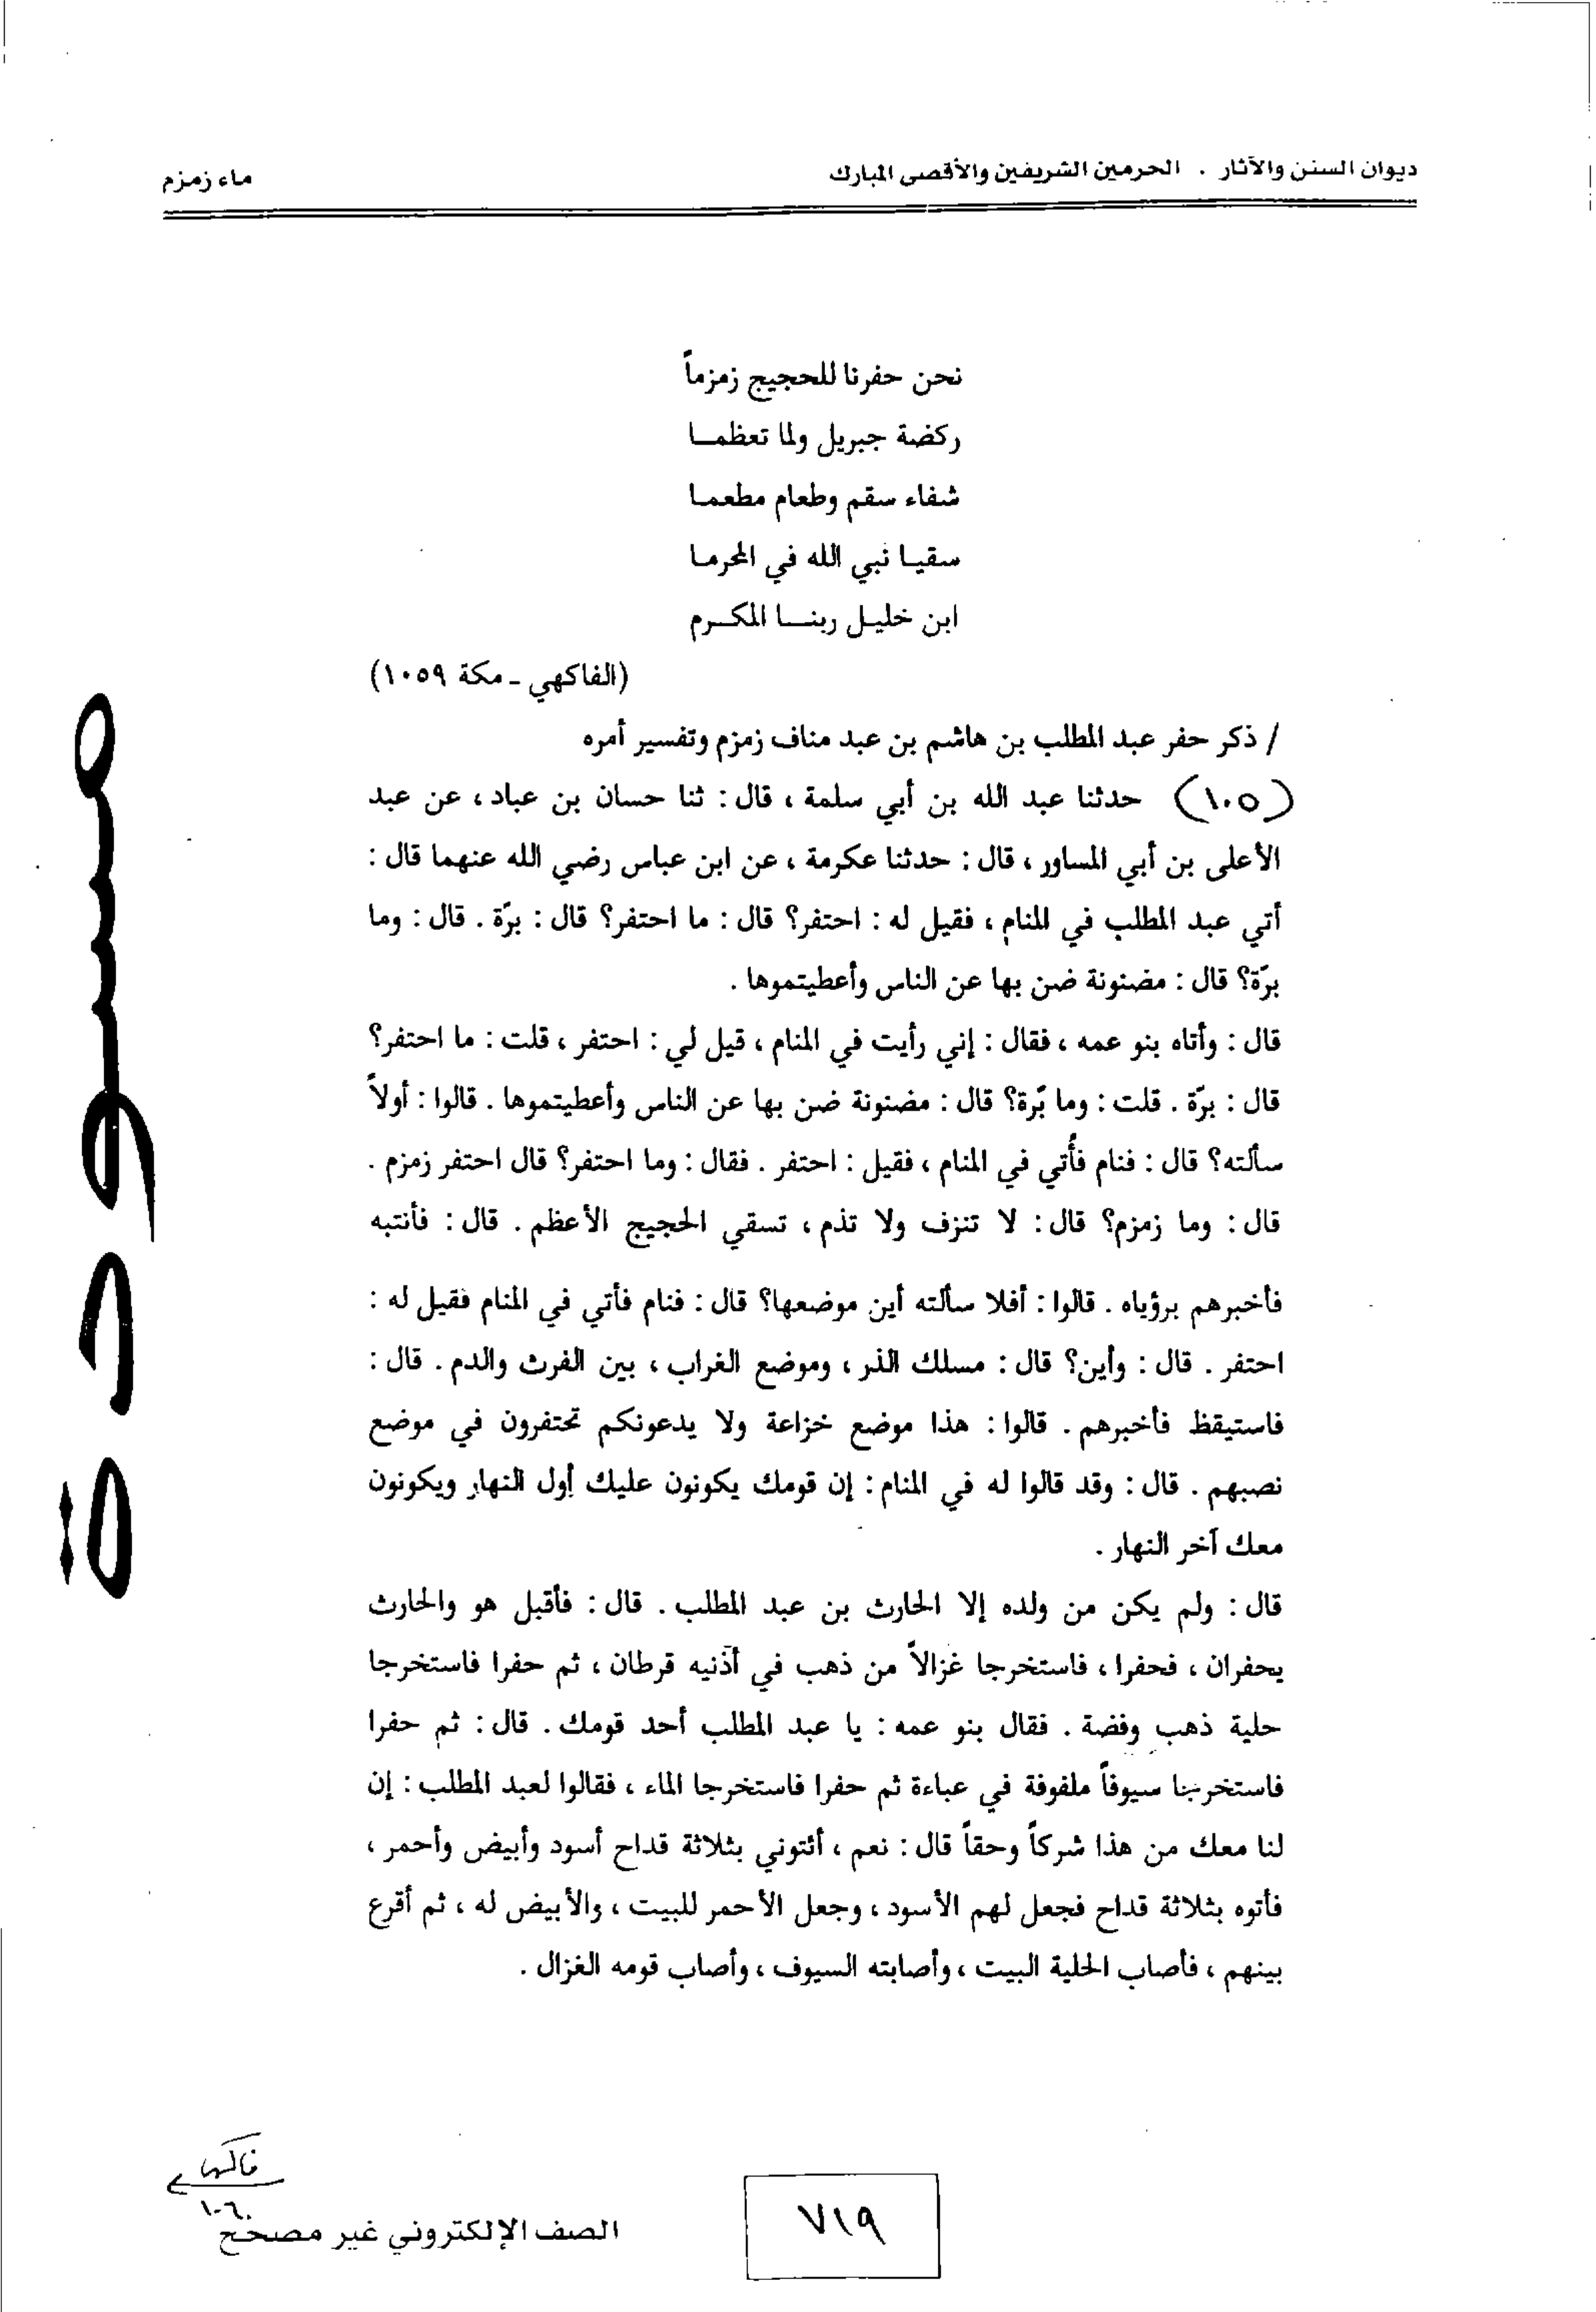 ديوان السنن والآثار . الحرمين الشريفين والأقصى المبارك
ماء زمزم
نحن حفرنا للحجيج زمزماً
ركضة جبريل ولما تعظما
شفاء سقم وطعام مطعما
سقيا نبي الله في المحرما
ابن خليل ربنا المكرم
(الفاكهي - مكة ١٠٥٩)
/ ذكر حفر عبد المطلب بن هاشم بن عبد مناف زمزم وتفسير أمره
(١٠٥) حدثنا عبد الله بن أبي سلمة ، قال : ثنا حسان بن عباد ، عن عبد
الأعلى بن أبي المساور ، قال : حدثنا عكرمة ، عن ابن عباس رضي الله عنهما قال :
أتي عبد المطلب في المنام ، فقيل له : احتفر؟ قال : ما احتفر؟ قال : برّة . قال : وما
برّة؟ قال : مضنونة ضن بها عن الناس وأعطيتموها .
قال : وأتاه بنو عمه ، فقال : إني رأيت في المنام ، قيل لي : احتفر ، قلت : ما احتفر؟
قال : برّة . قلت : وما برّة؟ قال : مضنونة ضن بها عن الناس وأعطيتموها . قالوا : أولاً
سألته؟ قال : فنام فأُتي في المنام ، فقيل : احتفر . فقال : وما احتفر؟ قال احتفر زمزم .
قال : وما زمزم؟ قال : لا تنزف ولا تذم ، تسقي الحجيج الأعظم . قال : فأنتبه
فأخبرهم برؤياه . قالوا : أفلا سألته أين موضعها؟ قال : فنام فأتي في المنام فقيل له :
احتفر . قال : وأين؟ قال : مسلك الذر ، وموضع الغراب ، بين الفرث والدم . قال :
فاستيقظ فأخبرهم . قالوا : هذا موضع خزاعة ولا يدعونكم تحتفرون في موضع
نصبهم . قال : وقد قالوا له في المنام : إن قومك يكونون عليك أول النهار ويكونون
معك آخر النهار .
قال : ولم يكن من ولده إلا الحارث بن عبد المطلب . قال : فأقبل هو والحارث
يحفران ، فحفرا ، فاستخرجا غزالاً من ذهب في أذنيه قرطان ، ثم حفرا فاستخرجا
حلية ذهب وفضة . فقال بنو عمه : يا عبد المطلب أحد قومك . قال : ثم حفرا
فاستخرجا سيوفاً ملفوفة في عباءة ثم حفرا فاستخرجا الماء ، فقالوا لعبد المطلب : إن
لنا معك من هذا شركاً وحقاً قال : نعم ، أئتوني بثلاثة قداح أسود وأبيض وأحمر ،
فأتوه بثلاثة قداح فجعل لهم الأسود ، وجعل الأحمر للبيت ، والأبيض له ، ثم أقرع
بينهم ، فأصاب الحلية البيت ، وأصابته السيوف ، وأصاب قومه الغزال .
مسودة
فاكهي
١٠٦٠
الصف الإلكتروني غير مصحح
٧١٩